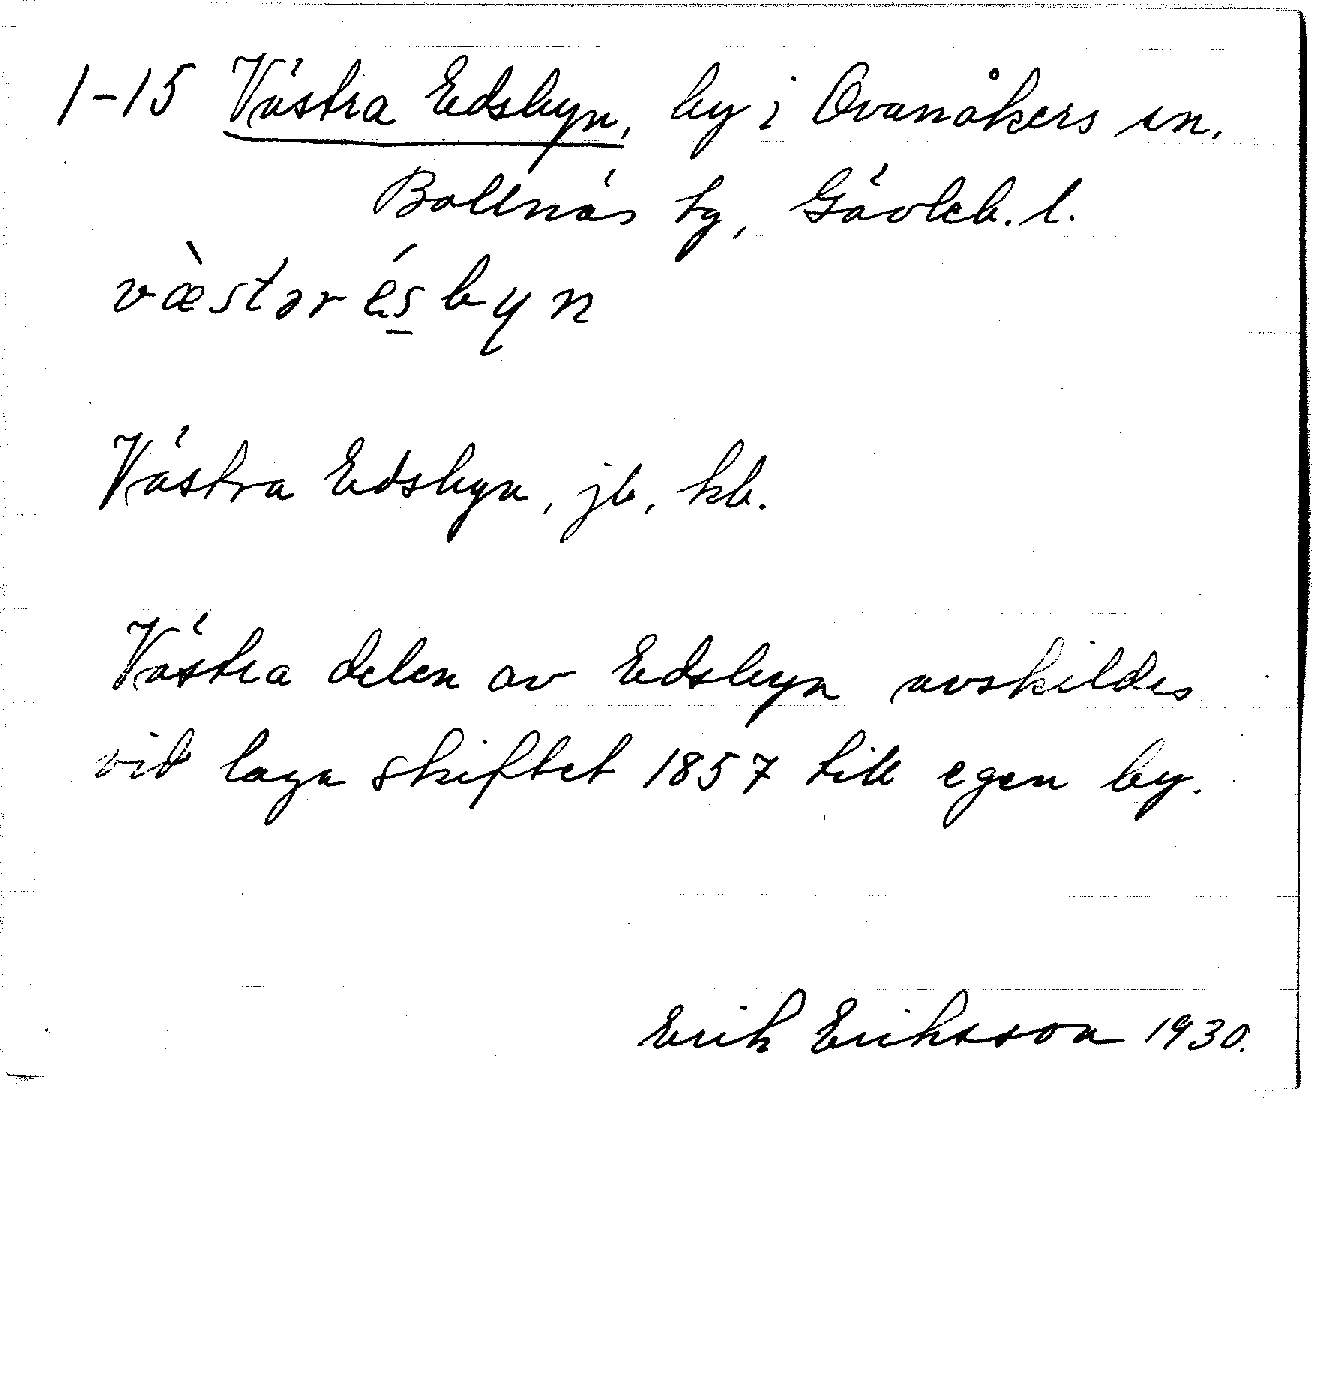 1-15 Västra Edsbyn, by i Ovanåkers sn.
Bollnäs tg, Gävleb. l.
væ̀stər és̠byn
Västra Edsbyn, jb, kb.
Västra delen av Edsbyn avskildes
vid laga skiftet 1857 till egen by.
Erik Eriksson 1930.